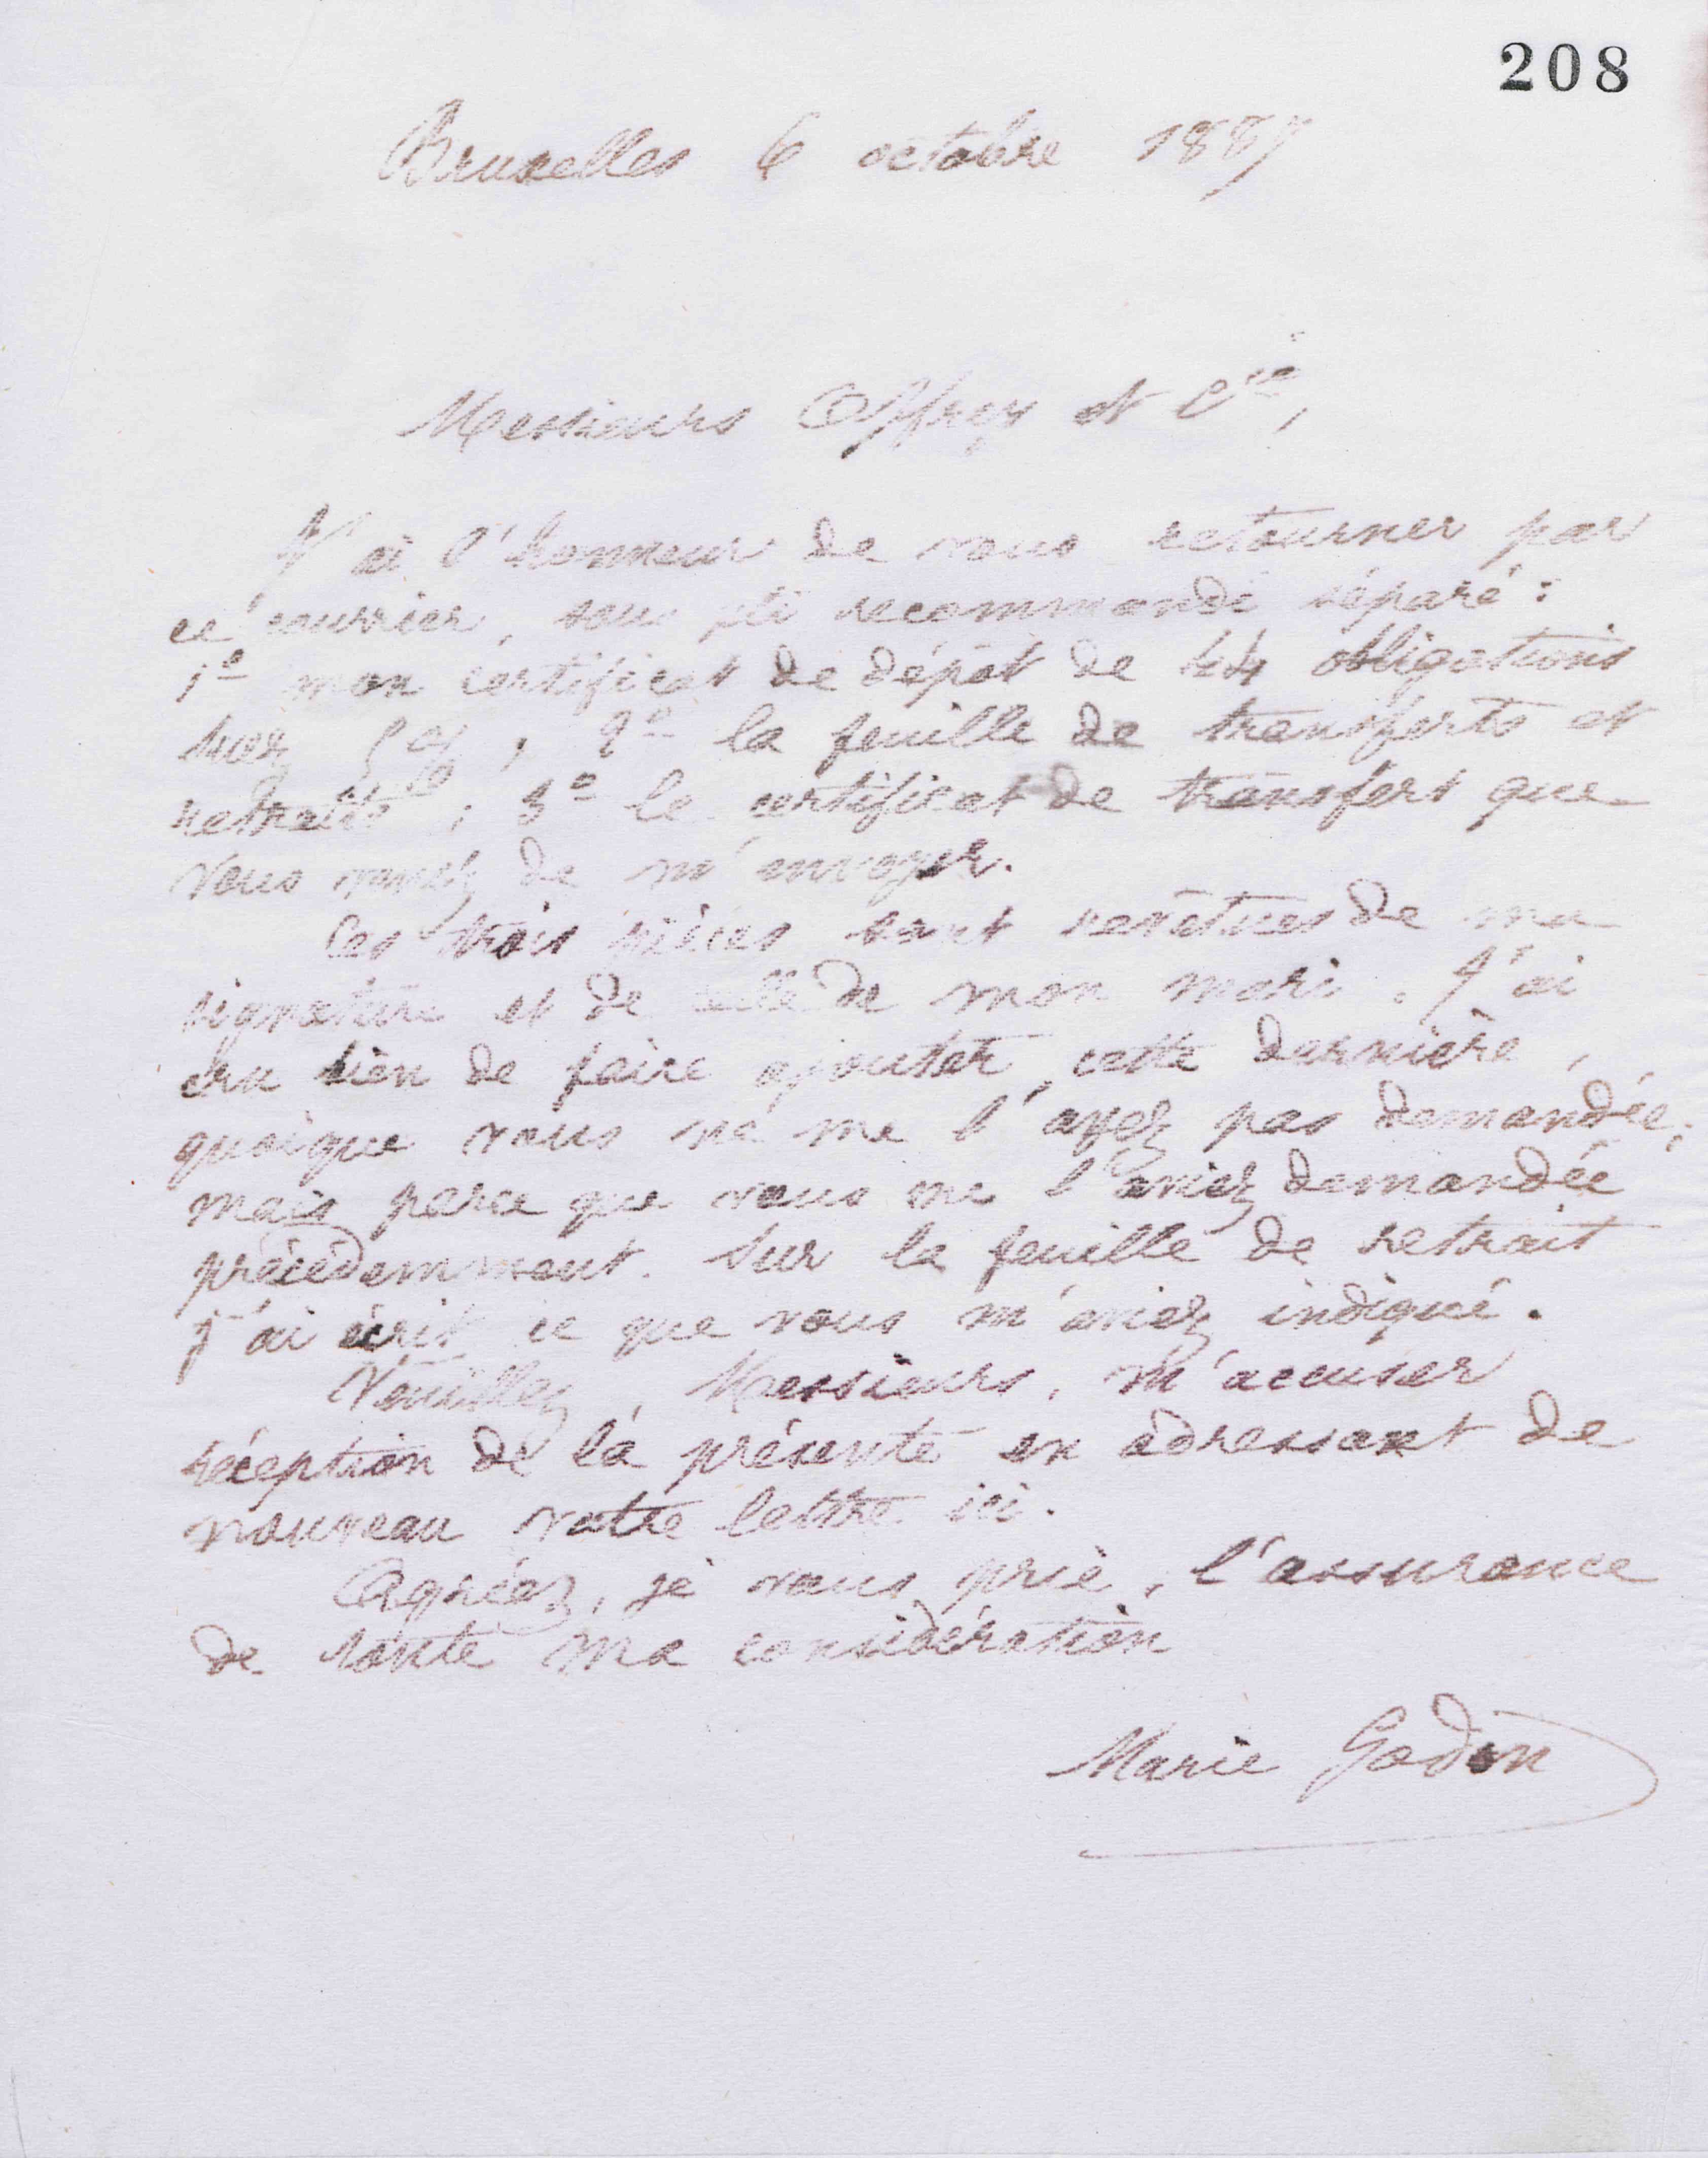 208
Bruxelles 6 octobre 1887
Messieurs Offroy et Cie,
J'ai l'honneur de vous retourner par
ce courrier, sous pli recommandé séparé :
1º mon certificat de dépôt de 44 obligations
Suez 5 % ; 2º la feuille de transferts et
retraits ; 3º le certificat de transfert que
vous venez de m'envoyer.
Ces trois pièces sont revêtues de ma
signature et de celle de mon mari. J'ai
cru bien de faire ajouter cette dernière,
quoique vous ne me l'ayez pas demandée,
mais parce que vous me l'aviez demandée
précédemment. Sur la feuille de retrait
j'ai écrit ce que vous m'aviez indiqué.
Veuillez, Messieurs, m'accuser
réception de la présente en adressant de
nouveau votre lettre ici.
Agréez, je vous prie, l'assurance
de toute ma considération
Marie Godin